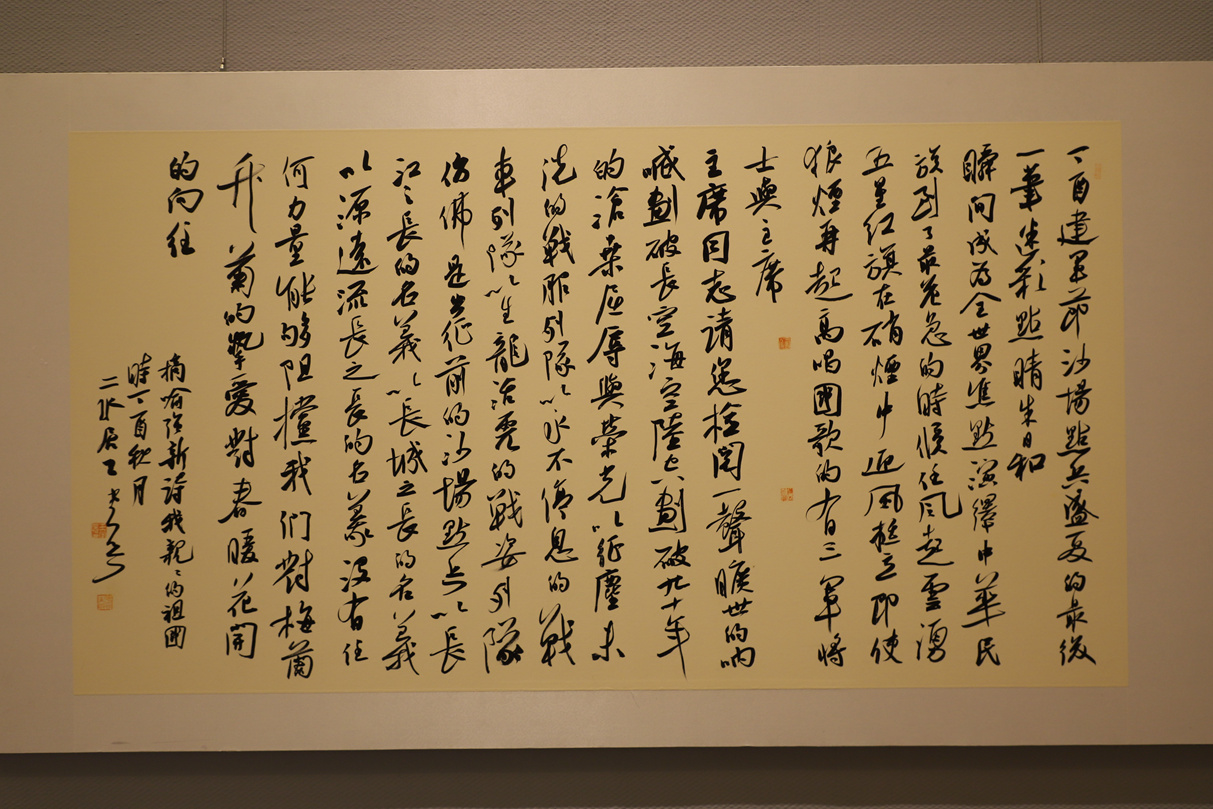 丁酉建軍節沙場點兵盛夏的最後
一筆濃彩點睛朱日和
瞬间成为全世界焦點演繹中華民
族到了最危急的時候任风起雲湧
五星红旗在硝煙中迎风挺立即使
狼煙再起高唱國歌的有三軍將
士與主席
主席同志請您檢閱一聲曠世的呐
喊劃破長空海空陸也劃破九十年
的滄桑屈辱與榮光以征塵未
洗的戰服列隊以永不停息的戰
車列隊以生龍活虎的戰姿列隊
仿佛是出征前的沙場點兵以長
江之長的名義以長城之長的名義
以源遠流長之長的名義没有任
何力量能够阻擋我们對梅蘭
竹菊的摯愛對春暖花開
的向往
摘 新詩我親之的祖國
時丁酉秋月
二 居